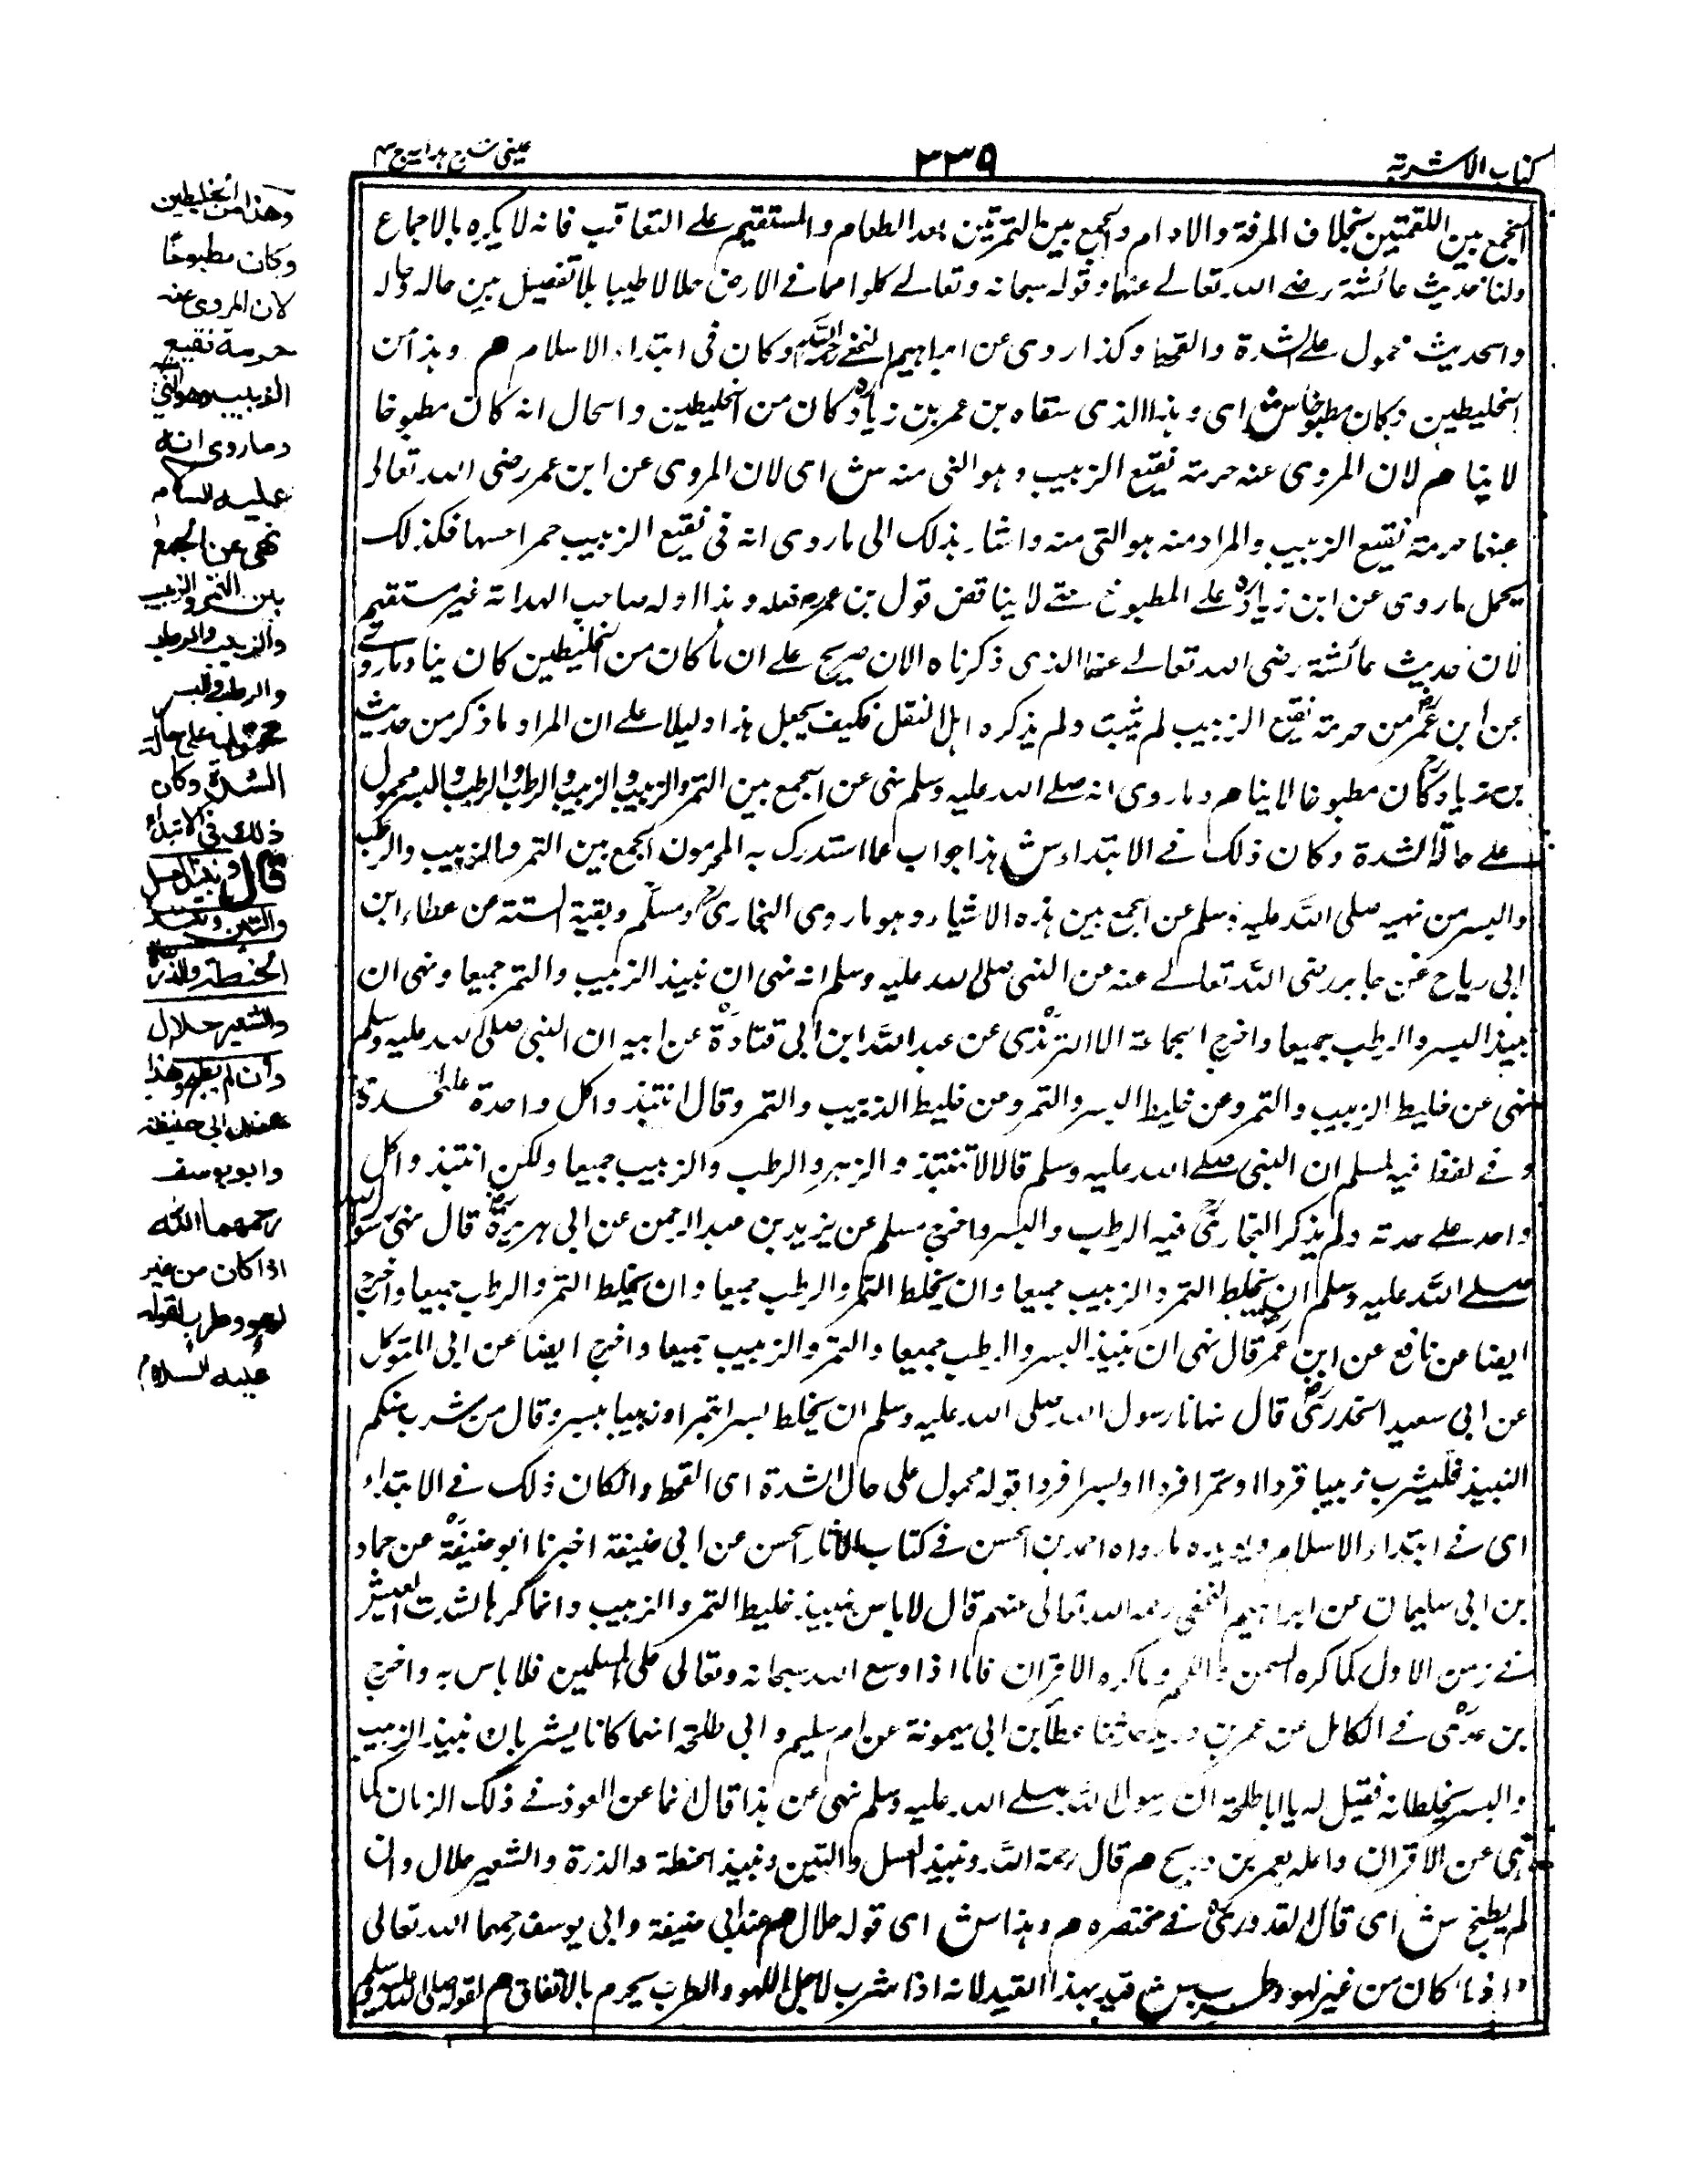 كتاب الاشربة
٣٣٩
عيني شرح هداية ج ٤
الجمع بين اللقمتين بخلاف المرقة والادام والجمع بين التمرتين بعد الطعام والمستقيم على التعاقب فانه لا يكره بالاجماع
ولنا حديث عائشة رضي الله تعالى عنها وقوله سبحانه وتعالى كلوا مما في الارض حلالا طيبا بلا تفصيل بين حاله وحاله
والحديث محمول على الشدة والقحط وكذا روى عن ابراهيم النخعي رحمه الله وكان في ابتداء الاسلام م وهذا من
الخليطين وكان مطبوخا ش اى وهذا الذى سقاه بن عمر بن زياد كان من الخليطين والحال انه كان مطبوخا
لا نيئا م لان المروى عنه حرمة نقيع الزبيب وهو النى منه ش اى لان المروى عن ابن عمر رضى الله تعالى
عنهما حرمة نقيع الزبيب والمراد منه هو النى منه واشار بذلك الى ما روى انه فى نقيع الزبيب خمر امسها فكذلك
يحمل ما روى عن ابن زياد على المطبوخ حتى لا يناقض قول بن عمر فعله وهذا اوله صاحب الهداية غير مستقيم
لان حديث عائشة رضى الله تعالى عنها الذى ذكرناه الان صريح على ان ما كان من الخليطين كان نيئا وما روى
عن ابن عمر من حرمة نقيع الزبيب لم يثبت ولم يذكره اهل النقل فكيف يجعل هذا دليلا على ان المراد ما ذكر من حديث
بن زياد كان مطبوخا لا نيئا م وما روى انه صلى الله عليه وسلم نهى عن الجمع بين التمر والزبيب والزبيب والرطب والرطب والبسر محمول
على حالة الشدة وكان ذلك في الابتداء ش هذا جواب عما استدرك به المحرمون الجمع بين التمر والزبيب والرطب
والبسر من نهيه صلى الله عليه وسلم عن الجمع بين هذه الاشياء وهو ما روى البخارى ومسلم وبقية الستة عن عطاء ابن
ابى رباح عن جابر رضى الله تعالى عنه عن النبى صلى الله عليه وسلم انه نهى ان نبيذ الزبيب والتمر جميعا ونهى ان
نبيذ البسر والرطب جميعا واخرج الجماعة الا الترمذى عن عبد الله ابن ابى قتادة عن ابيه ان النبى صلى الله عليه وسلم
نهى عن خليط الزبيب والتمر وعن خليط البسر والتمر ومن خليط الزبيب والتمر وقال انتبذوا كل واحدة على حدة
وفى لفظ فيه لمسلم ان النبى صلى الله عليه وسلم قال لا تنتبذ والزهو والرطب والزبيب جميعا ولكن انتبذوا كل
واحد على حدته ولم يذكر البخارى فيه الرطب والبسر واخرج مسلم عن يزيد بن عبد الرحمن عن ابى هريرة قال نهى رسول الله
صلى الله عليه وسلم ان يخلط التمر والزبيب جميعا وان يخلط التمر والرطب جميعا وان يخلط التمر والرطب جميعا واخرج
ايضا عن نافع عن ابن عمر قال نهى ان نبيذ البسر والرطب جميعا والتمر والزبيب جميعا واخرج ايضا عن ابى المتوكل
عن ابى سعيد الخدرى قال نهانا رسول الله صلى الله عليه وسلم ان يخلط بسرا بتمر او زبيبا ببسر وقال من شرب منكم
النبيذ فليشرب زبيبا فردا او تمرا فردا او بسرا فردا قوله محمول على حال الشدة اى القحط والكان ذلك في الابتداء
اى في ابتداء الاسلام ويؤيده ما رواه محمد بن الحسن في كتاب الاثار الحسن عن ابى حنيفة اخبرنا ابو حنيفة عن حماد
بن ابى سليمان عن ابراهيم النخعى رحمه الله تعالى عنهم قال لا باس نبيذ خليط التمر والزبيب وانما كرها لشدت العيش
في زمن الاول كما كره السمن واللحم وما كره الاقران فاما اذا وسع الله سبحانه وتعالى على المسلمين فلا باس به واخرج
بن عدى في الكامل عن عمر بن حدثنا عطا بن ابى ميمونة عن ام سليم وابى طلحة انهما كانا يشربان نبيذ الزبيب
والبسر يخلطانه فقيل له يا ابا طلحة ان رسول الله صلى الله عليه وسلم نهى عن هذا قال انما عن العوز في ذلك الزمان كما
نهى عن الاقران واعله بعمر بن م قال رحمة الله ونبيذ العسل والتين ونبيذ الحنطة والذرة والشعير حلال وان
لم يطبخ ش اى قال القدورى في مختصره م وهذا ش اى قوله حلال م عند ابى حنيفة وابى يوسف رحمهما الله تعالى
اذا كان من غير لهو وطرب ش قيد بهذا القيد لانه اذا شرب لاجل اللهو والطرب يحرم بالاتفاق م لقوله صلى الله عليه وسلم
وهذا من الخليطين
وكان مطبوخا
لان المروى عنه
حرمة نقيع
الزبيب وهو النى
وما روى انه
عليه السلام
نهى عن الجمع
بين التمر والزبيب
والزبيب والرطب
والرطب والبسر
محمول على حالة
الشدة وكان
ذلك فى الابتداء
قال ونبيذ العسل
والتين ونبيذ
الحنطة والذرة
والشعير حلال
وان لم يطبخ وهذا
عند ابى حنيفة
وابو يوسف
رحمهما الله
اذا كان من غير
لهو وطرب لقوله
عليه السلام